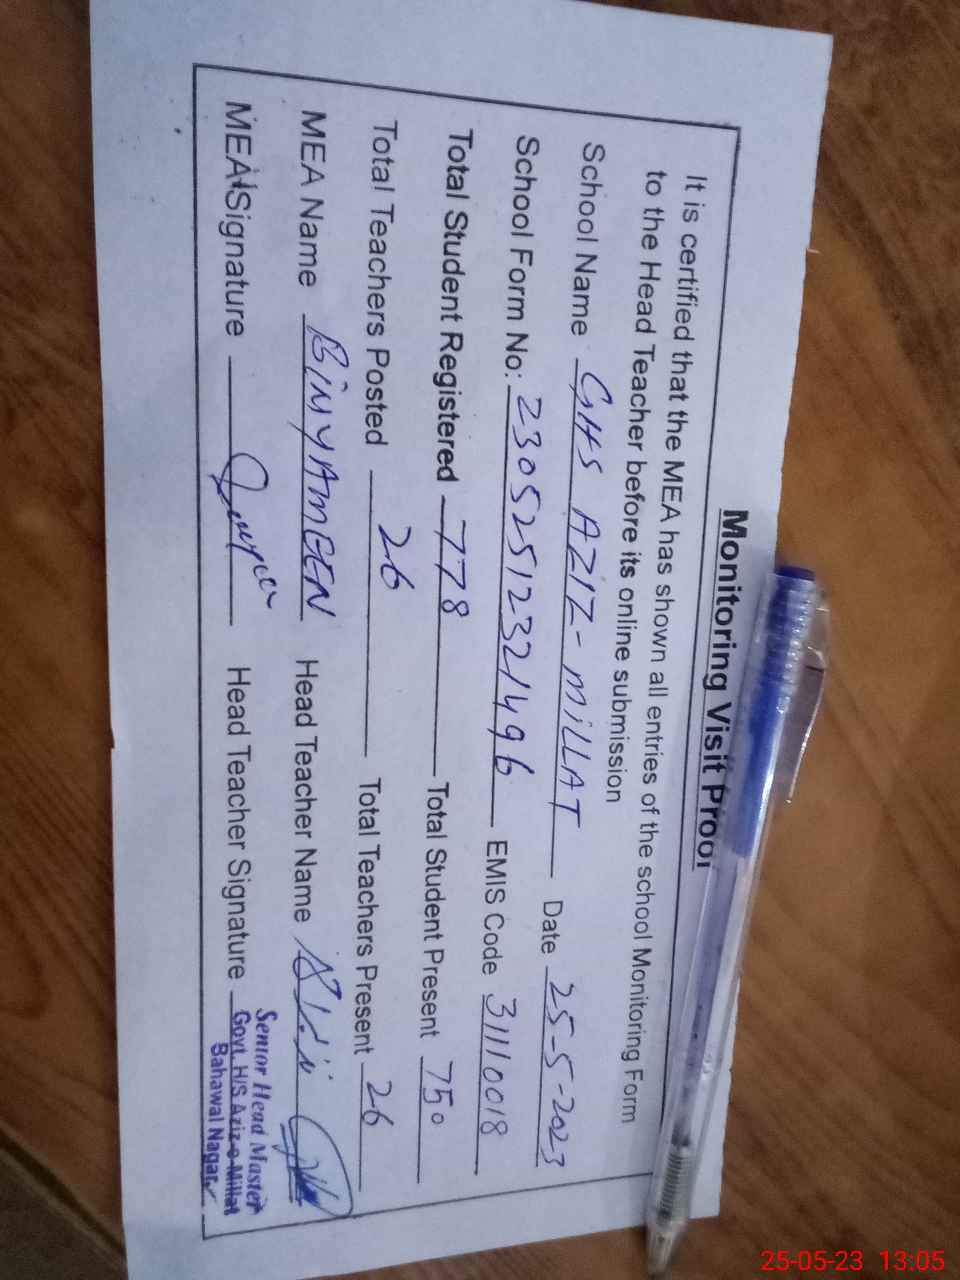 Monitoring Visit Proof
It is certified that the MEA has shown all entries of the school Monitoring Form
to the Head Teacher before its online submission
School Name GHS AZIZ-MiLLAT Date 25-5-2023
School Form No: 23052512321496 EMIS Code 31110018
Total Student Registered 778 Total Student Present 750
Total Teachers Posted 26 Total Teachers Present 26
MEA Name BiNYAMEEN Head Teacher Name
MEA Signature Head Teacher Signature
Senior Head Master
Govt. H/S Aziz-e-Millat
Bahawal Nagar
25-05-23 13:05